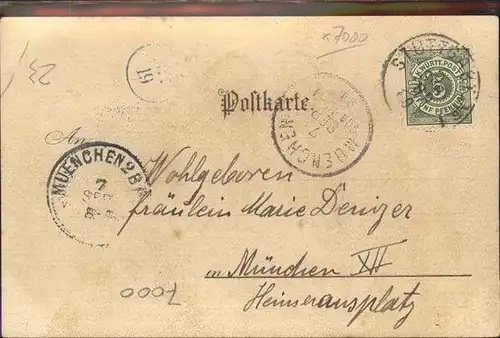 x7000
23
19
STUTTGART
K. WÜRTT. POST
5
FÜNF PFENNIG
Postkarte.
MUENCHEN
7
SEP
An
MUENCHEN 2 B
7
Wohlgeboren
fräulein Marie Denizer
in München XII
Heimeranplatz
7000